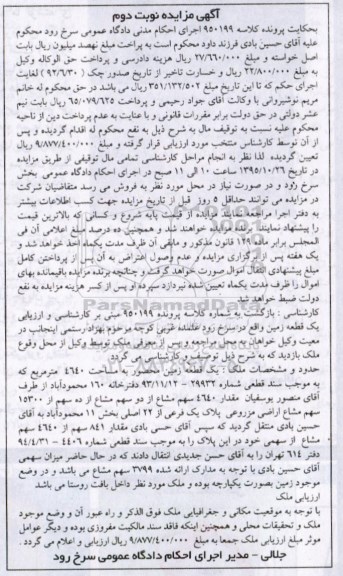 آگهی مزایده نوبت دوم
بحکایت پرونده کلاسه ۹۵۰۱۹۹ اجرای احکام مدنی دادگاه عمومی سرخ رود محکوم
علیه آقای حسین بادی فرزند داود محکوم است به پرداخت مبلغ نهصد میلیون ریال بابت
اصل خواسته و مبلغ ۲۷/۶۶۰/۰۰۰ ریال هزینه دادرسی و پرداخت حق الوکاله وکیل
به مبلغ ۲۲/۸۰۰/۰۰۰ ریال و خسارت تاخیر از تاریخ صدور چک ( ۹۲/۶/۳۰ ) لغایت
اجرای حکم که تا این تاریخ مبلغ ۳۵۱/۱۳۲/۵۰۲ ریال می باشد در حق محکوم له خانم
مریم نوشیروانی با وکالت آقای جواد رحیمی و پرداخت ۶۵/۰۷۹/۶۲۵ ریال بابت نیم
عشر دولتی در حق دولت برابر مقررات قانونی و با عنایت به عدم پرداخت دین از ناحیه
محکوم علیه نسبت به توقیف مال به شرح ذیل به نفع محکوم له اقدام گردیده و پس
از آن توسط کارشناس منتخب مورد ارزیابی قرار گرفته و مبلغ ۹/۸۷۷/۴۰۰/۰۰۰ ریال
تعیین گردیده لذا نظر به انجام مراحل کارشناسی تمامی مال توقیفی از طریق مزایده
در تاریخ ۱۳۹۵/۱۰/۲۶ ساعت ۱۰ الی ۱۱ صبح در اجرای احکام دادگاه عمومی بخش
سرخ رود و در صورت نیاز در محل مورد نظر به فروش می رسد متقاضیان شرکت
در مزایده می توانند حداقل ۵ روز قبل از تاریخ مزایده جهت کسب اطلاعات بیشتر
به دفتر اجرا مراجعه نمایند مزایده از قیمت پایه شروع و کسانی که بالاترین قیمت
را پیشنهاد نمایند برنده مزایده خواهند شد و همچنین ده درصد مبلغ اعلامی آن فی
المجلس برابر ماده ۱۲۹ قانون مذکور و مابقی آن ظرف مدت یکماه اخذ خواهد شد و
یک هفته پس از برگزاری مزایده و عدم وصول اعتراض به آن پس از پرداختن کامل
مبلغ پیشنهادی انتقال اموال صورت خواهد گرفت و چنانچه برنده مزایده باقیمانده بهای
اموال را ظرف مدت یکماه تعیین شده نپردازد سپرده او پس از کسر هزینه مزایده به نفع
دولت ضبط خواهد شد
کارشناسی : بازگشت به شماره کلاسه پرونده ۹۵۰۱۹۹ مبنی بر کارشناسی و ارزیابی
یک قطعه زمین واقع در سرخ رود خلعده غربی کوچه مرحوم بهزاد رستمی اینجانب در
معیت وکیل خواهان به محل مراجعه و پس از معرفی ملک توسط وکیل از محل وقوع
ملک بازدید که به شرح ذیل توصیف و کارشناسی می گردد
حدود و مشخصات ملک : یک قطعه زمین محصور به مساحت ۴۶۴۰ مترمربع که
به موجب سند قطعی شماره ۲۹۹۳۲ – ۹۳/۱۱/۱۲ دفترخانه ۱۶۰ محمودآباد از طرف
آقای منصور یوسفیان مقدار ۴۶۴۰ سهم مشاع از دو سهم مشاع از ده سهم از ۱۵۳۰۰
سهم مشاع اراضی مزروعی پلاک یک فرعی از ۲۲ اصلی بخش ۱۱ محمودآباد به آقای
حسین بادی منتقل گردید که سپس آقای حسی بادی مقدار ۸۴۱ سهم از ۴۶۴۰ سهم
مشاع از سهمی خود در این پلاک را به موجب سند قطعی شماره ۴۴۰۶ – ۹۴/۴/۳۱
دفتر ۶۱۴ تهران را به آقای حسن جدیدی انتقال دادند که در حال حاضر میزان سهمی
آقای حسین بادی با توجه به مدارک ارائه شده ۳۷۹۹ سهم مشاع می باشد و در وضع
موجود زمین بصورت یکپارچه بوده و ملک مورد نظر داخل بافت روستا می باشد
ارزیابی ملک
با توجه به موقعیت مکانی و جغرافیایی ملک فوق الذکر و راه عبور آن و وضع موجود
ملک و تحقیقات محلی و همچنین اینکه فاقد سند مالکیت مفروزی بوده و دیگر عوامل
موثر مبلغ ارزیابی ملک جمعا به مبلغ ۹/۸۷۷/۴۰۰/۰۰۰ ریال ارزیابی و اعلام می گردد .
جلالی – مدیر اجرای احکام دادگاه عمومی سرخ رود
ParsNamadData